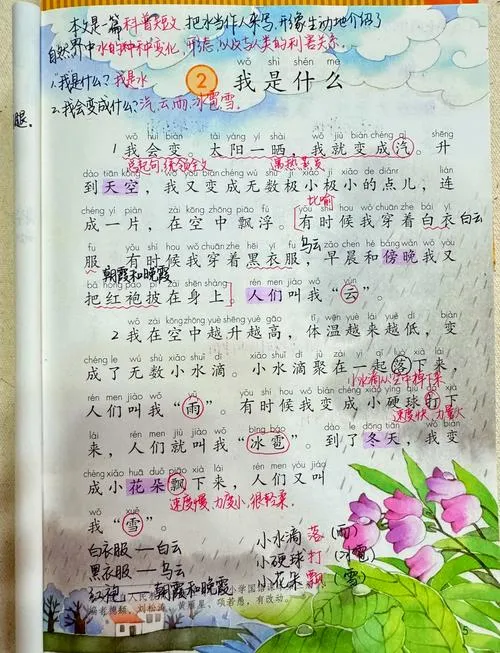 本文是一篇科普短文 把水当作人来写,形像生动地介绍了
自然界中水的种种变化、形态,以及与人类的利害关系.
1.我是什么? 我是水
2.我会变成什么? 汽,云,雨,冰雹,雪.
腿,
wǒ shì shén me
2 我是什么
wǒ huì biàn tài yáng yí shài wǒ jiù biàn chéng qì shēng
1 我会变。太阳一晒,我就变成汽。升
总起句,统领全文 遇热蒸发
dào tiān kōng wǒ yòu biàn chéng wú shù jí xiǎo jí xiǎo de diǎn er lián
到天空,我又变成无数极小极小的点儿,连
比喻
chéng yí piàn zài kōng zhōng piāo fú yǒu shí hou wǒ chuān zhe bái yī
成一片,在空中飘浮。有时候我穿着白衣 白云
fú yǒu shí hou wǒ chuān zhe hēi yī fu zǎo chén hé bàng wǎn wǒ yòu
服,有时候我穿着黑衣服,早晨和傍晚我又
乌云
朝霞和晚霞
bǎ hóng páo pī zài shēn shàng rén men jiào wǒ yún
把红袍披在身上。人们叫我“云”。
wǒ zài kōng zhōng yuè shēng yuè gāo tǐ wēn yuè lái yuè dī biàn
2 我在空中越升越高,体温越来越低,变
chéng le wú shù xiǎo shuǐ dī xiǎo shuǐ dī jù zài yì qǐ luò xià lái
成了无数小水滴。小水滴聚在一起落下来,
小水滴从空中掉下来
rén men jiào wǒ yǔ yǒu shí hou wǒ biàn chéng xiǎo yìng qiú dǎ xià
人们叫我“雨”。有时候我变成小硬球打下
速度快,力量大
lái rén men jiù jiào wǒ bīng báo dào le dōng tiān wǒ biàn
来,人们就叫我“冰雹”。到了冬天,我变
chéng xiǎo huā duǒ piāo xià lái rén men yòu jiào
成小花朵飘下来,人们又叫
速度慢,力度小,很轻柔.
wǒ xuě
我“雪”。
白衣服——白云
黑衣服——乌云
红袍——朝霞和晚霞
小水滴 落 (雨)
小硬球 打 (冰雹)
小花朵 飘 (雪)
刘松涛、黄雁星、项若愚,有改动。
5